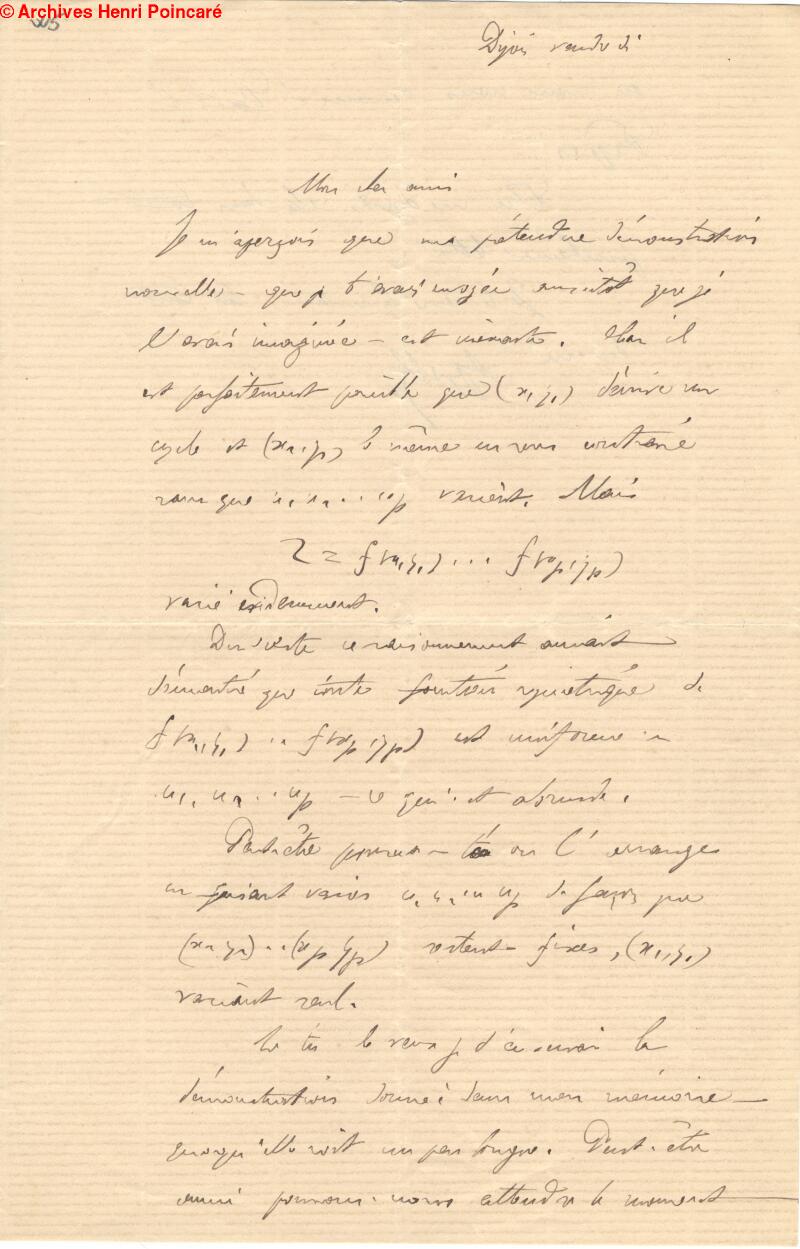 © Archives Henri Poincaré
305
Dijon vendredi
Mon cher ami
Je m'aperçois que ma prétendue démonstration
nouvelle – que je t'avais envoyée aussitôt que je
l'avais imaginée – est inexacte. Car il
est parfaitement possible que (x₁y₁) décrive un
cycle et (x₂,y₂) le même en sens contraire
sans que u₁ u₂ . . . up varient. Mais
Z = f(x₁,y₁) . . . f(xp,yp)
varie évidemment.
Du reste ce raisonnement aurait
démontré que toute fonction symétrique de
f(x₁,y₁) . . f(xp,yp) est uniforme en
u₁, u₂ . . up – ce qui est absurde.
Peut-être pourra-t-on l'arranger
en faisant varier u₁ u₂ . . up de façon que
(x₂y₂) . . (xp yp) restent fixes, (x₁,y₁)
variant seul.
Si tu le veux je t'enverrai la
démonstration donnée dans mon mémoire –
quoiqu'elle soit un peu longue. Peut-être
aussi pourrons-nous attendre le moment